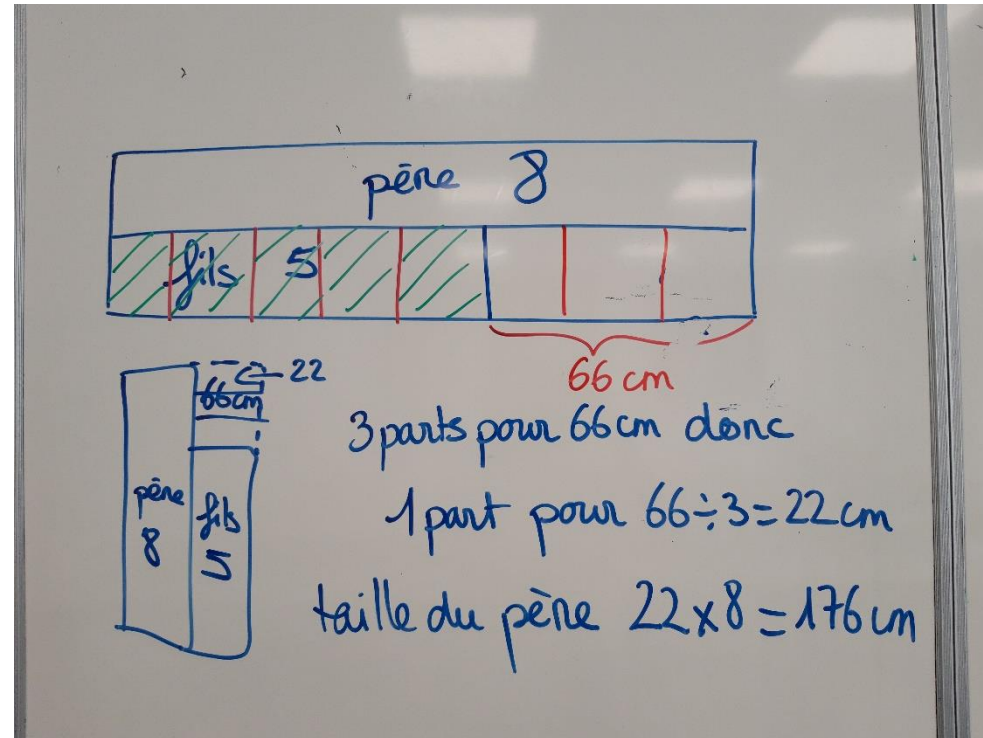 père 8
fils 5
66 cm
22
66cm
père
8
fils
5
3 parts pour 66 cm donc
1 part pour 66÷3=22 cm
taille du père 22x8=176 cm